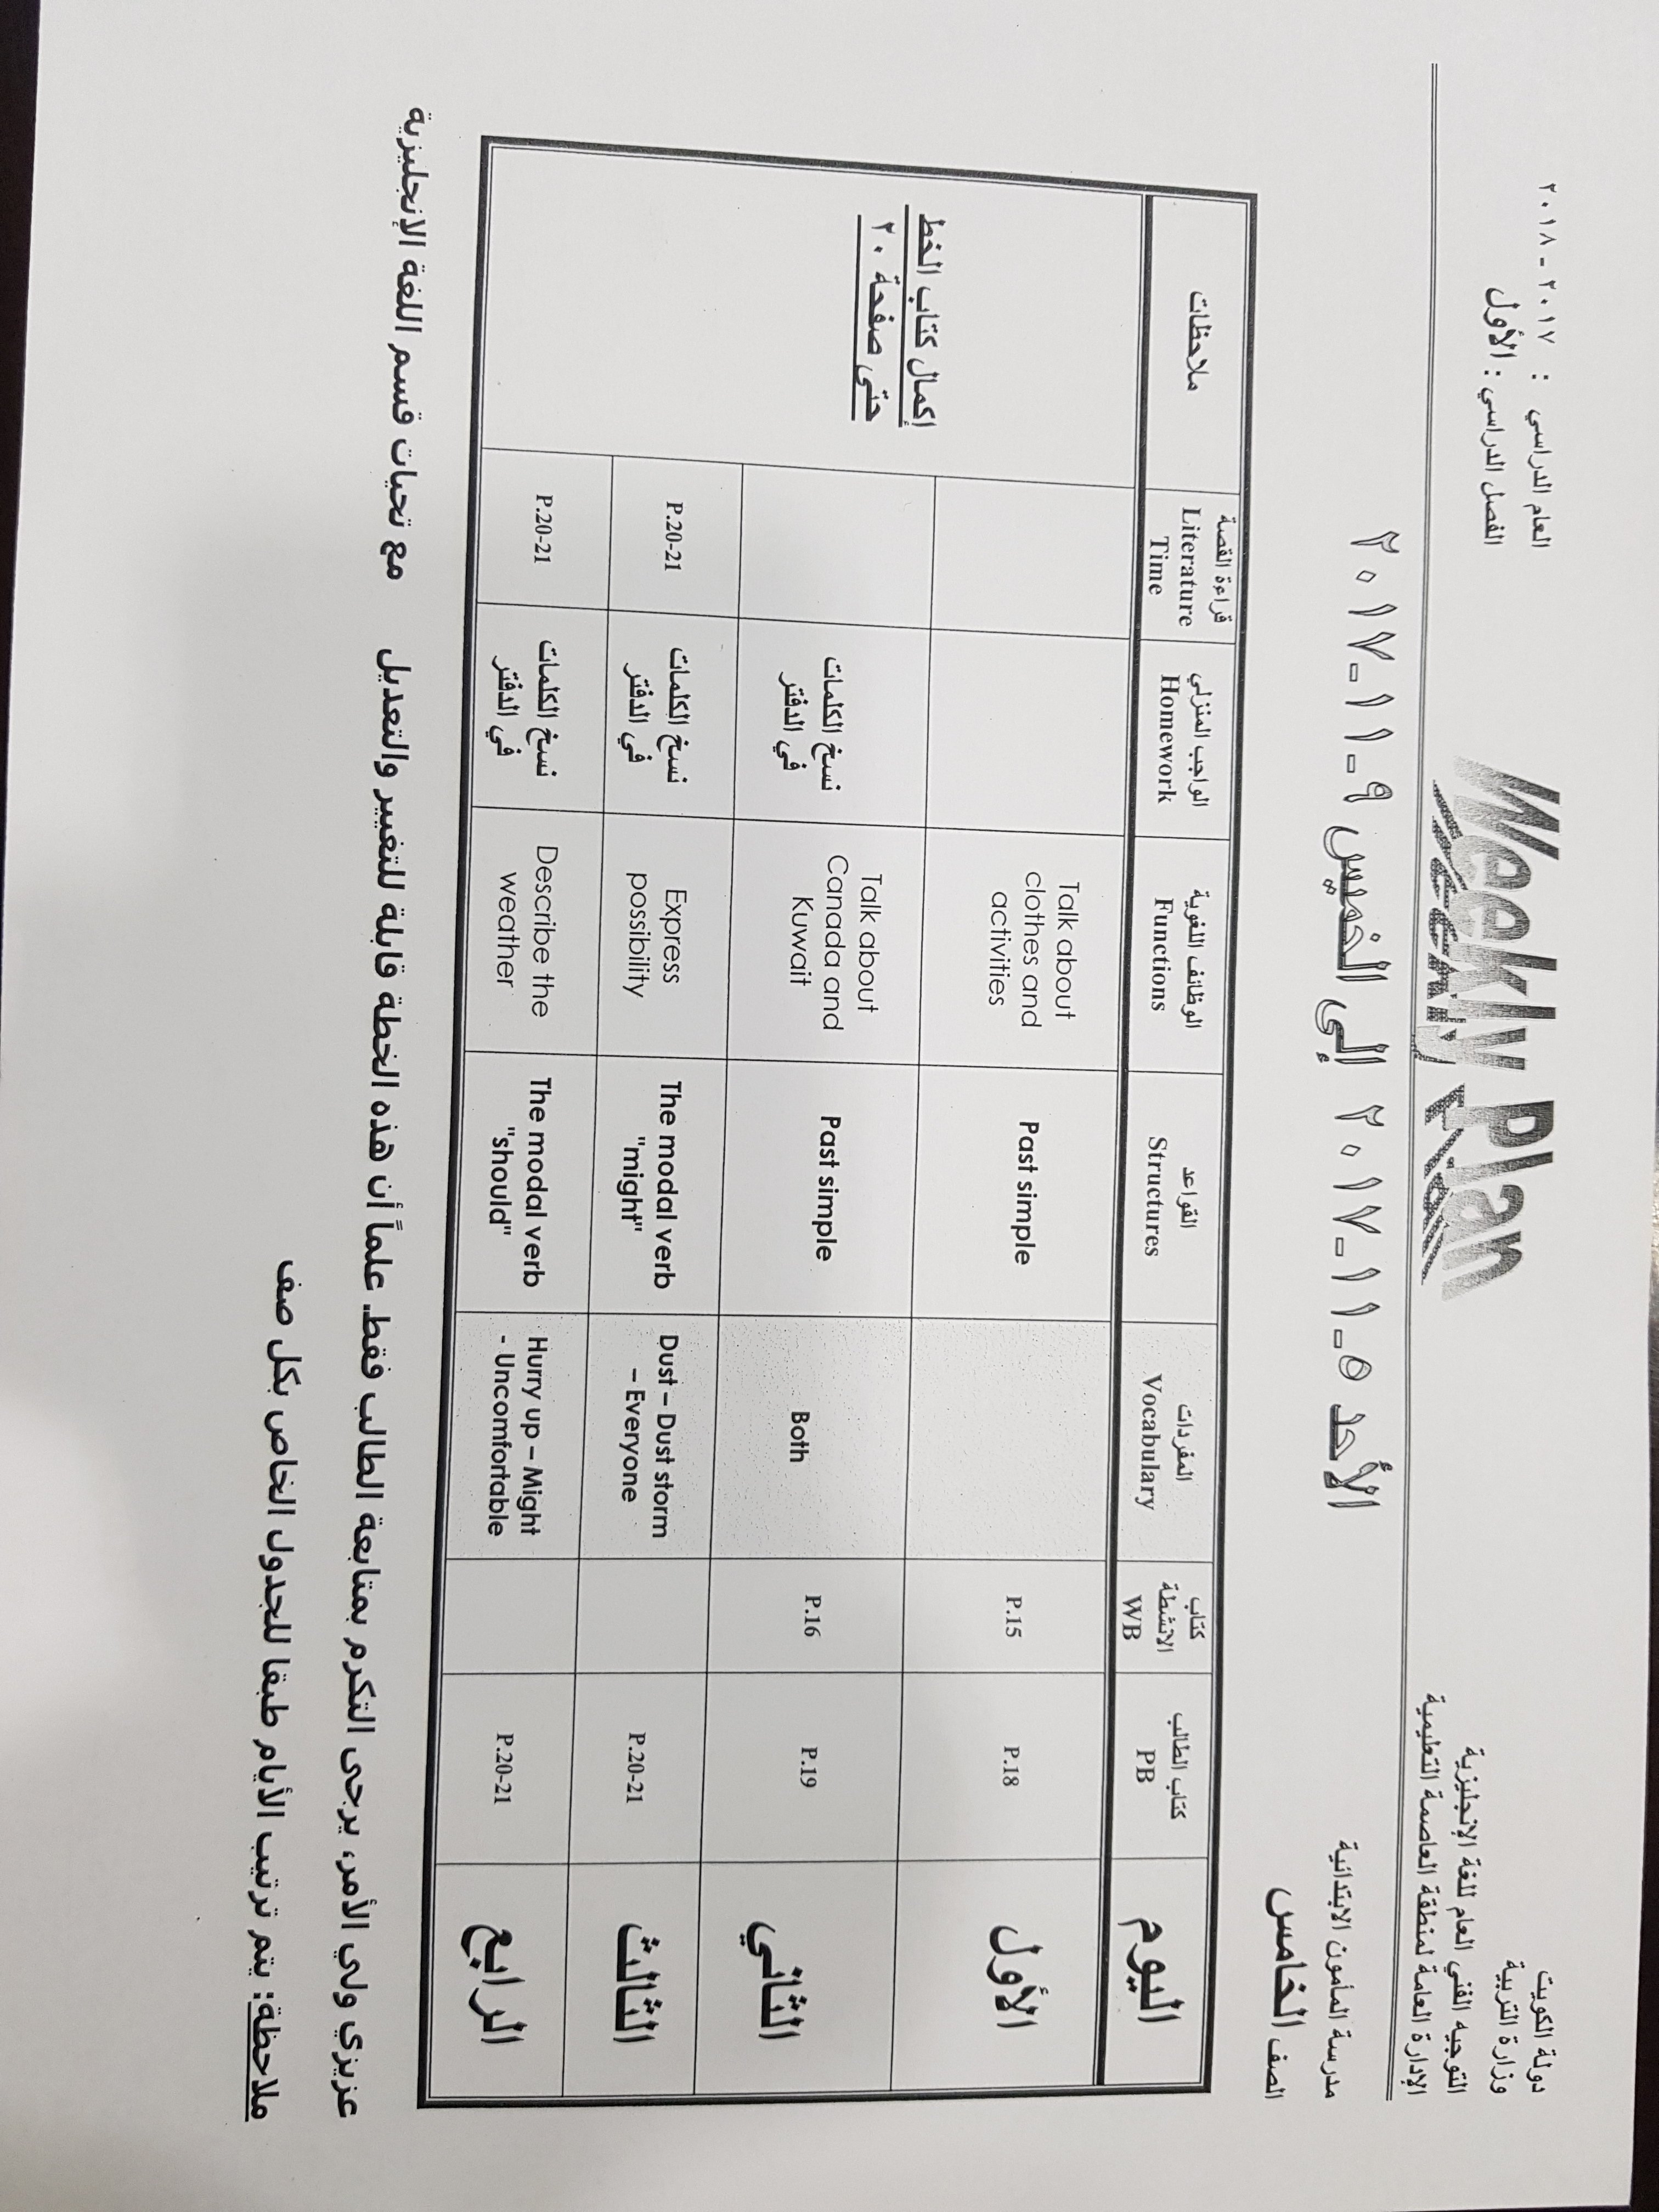 دولة الكويت
وزارة التربية
التوجيه الفني العام للغة الإنجليزية
الإدارة العامة لمنطقة العاصمة التعليمية
Weekly Plan
العام الدراسي : ٢٠١٧ - ٢٠١٨
الفصل الدراسي : الأول
مدرسة المأمون الابتدائية
الأحد ٥-١١-٢٠١٧ إلى الخميس ٩-١١-٢٠١٧
الصف الخامس
اليوم
كتاب الطالب
PB
كتاب
الانشطة
WB
المفردات
Vocabulary
القواعد
Structures
الوظائف اللغوية
Functions
الواجب المنزلي
Homework
قراءة القصة
Literature
Time
ملاحظات
الأول
P.18
P.15
Past simple
Talk about
clothes and
activities
الثاني
P.19
P.16
Both
Past simple
Talk about
Canada and
Kuwait
نسخ الكلمات
في الدفتر
إكمال كتاب الخط
حتى صفحة ٢٠
الثالث
P.20-21
Dust – Dust storm
– Everyone
The modal verb
"might"
Express
possibility
نسخ الكلمات
في الدفتر
P.20-21
الرابع
P.20-21
Hurry up – Might
- Uncomfortable
The modal verb
"should"
Describe the
weather
نسخ الكلمات
في الدفتر
P.20-21
عزيزي ولي الأمر، يرجى التكرم بمتابعة الطالب فقط علماً أن هذه الخطة قابلة للتغيير والتعديل مع تحيات قسم اللغة الإنجليزية
ملاحظة: يتم ترتيب الأيام طبقا للجدول الخاص بكل صف